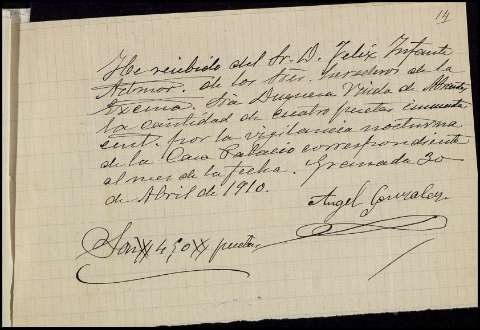 14
He recibido del Sr. D. Felix Infante
Admor. de los Sres. herederos de la
Excma. Sra Duquesa Viuda de Abrantes
la cantidad de cuatro pesetas cincuenta
cent. por la vigilancia nocturna
de la Casa Palacio correspondiente
al mes de la fecha. Granada 30
de Abril de 1910.
Angel Gonzalez
Son 4,50 pesetas